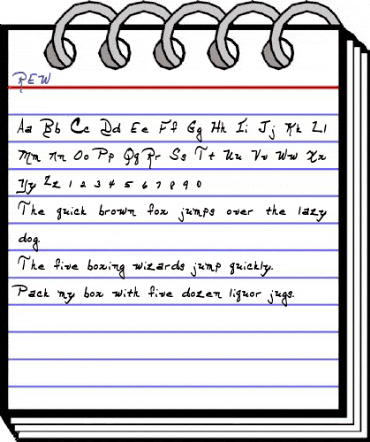 REW
Aa Bb Cc Dd Ee Ff Gg Hh Ii Jj Kk Ll
Mm Nn Oo Pp Qq Rr Ss Tt Uu Vv Ww Xx
Yy Zz 1 2 3 4 5 6 7 8 9 0
The quick brown fox jumps over the lazy
dog
The five boxing wizards jump quickly.
Pack my box with five dozen liquor jugs.